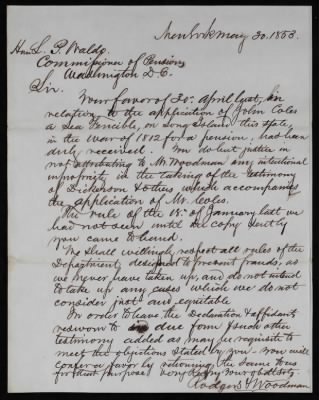 New York May 30. 1853.
Hon. L. P. Waldo,
Commissioner of Pensions
Washington D.C.
Sir.
Your favor of 30th April last, in
relation to the application of John Coles
a Sea Fencible, on Long Island this state,
in the war of 1812 for a pension, has been
duly received. You do but justice in
not attributing to Mr Woodman any intentional
impropriety in the taking of the testimony
of Dickerson & others which accompanies
the application of Mr. Coles.
The rule of the 18th of January last we
had not seen until the copy sent by
you came to hand.
We shall willingly respect all rules of the
Department designed to prevent frauds, as
we never have taken up, and do not intend
to take up any cases which we do not
consider just and equitable.
In order to have the Declaration & affidavits
resworn to in due form & such other
testimony added as may be requisite to
meet the objections stated by you you will
confer a favor by returning the same to us
for that purpose Very Resp. Your obdt Servts
Rodgers & Woodman